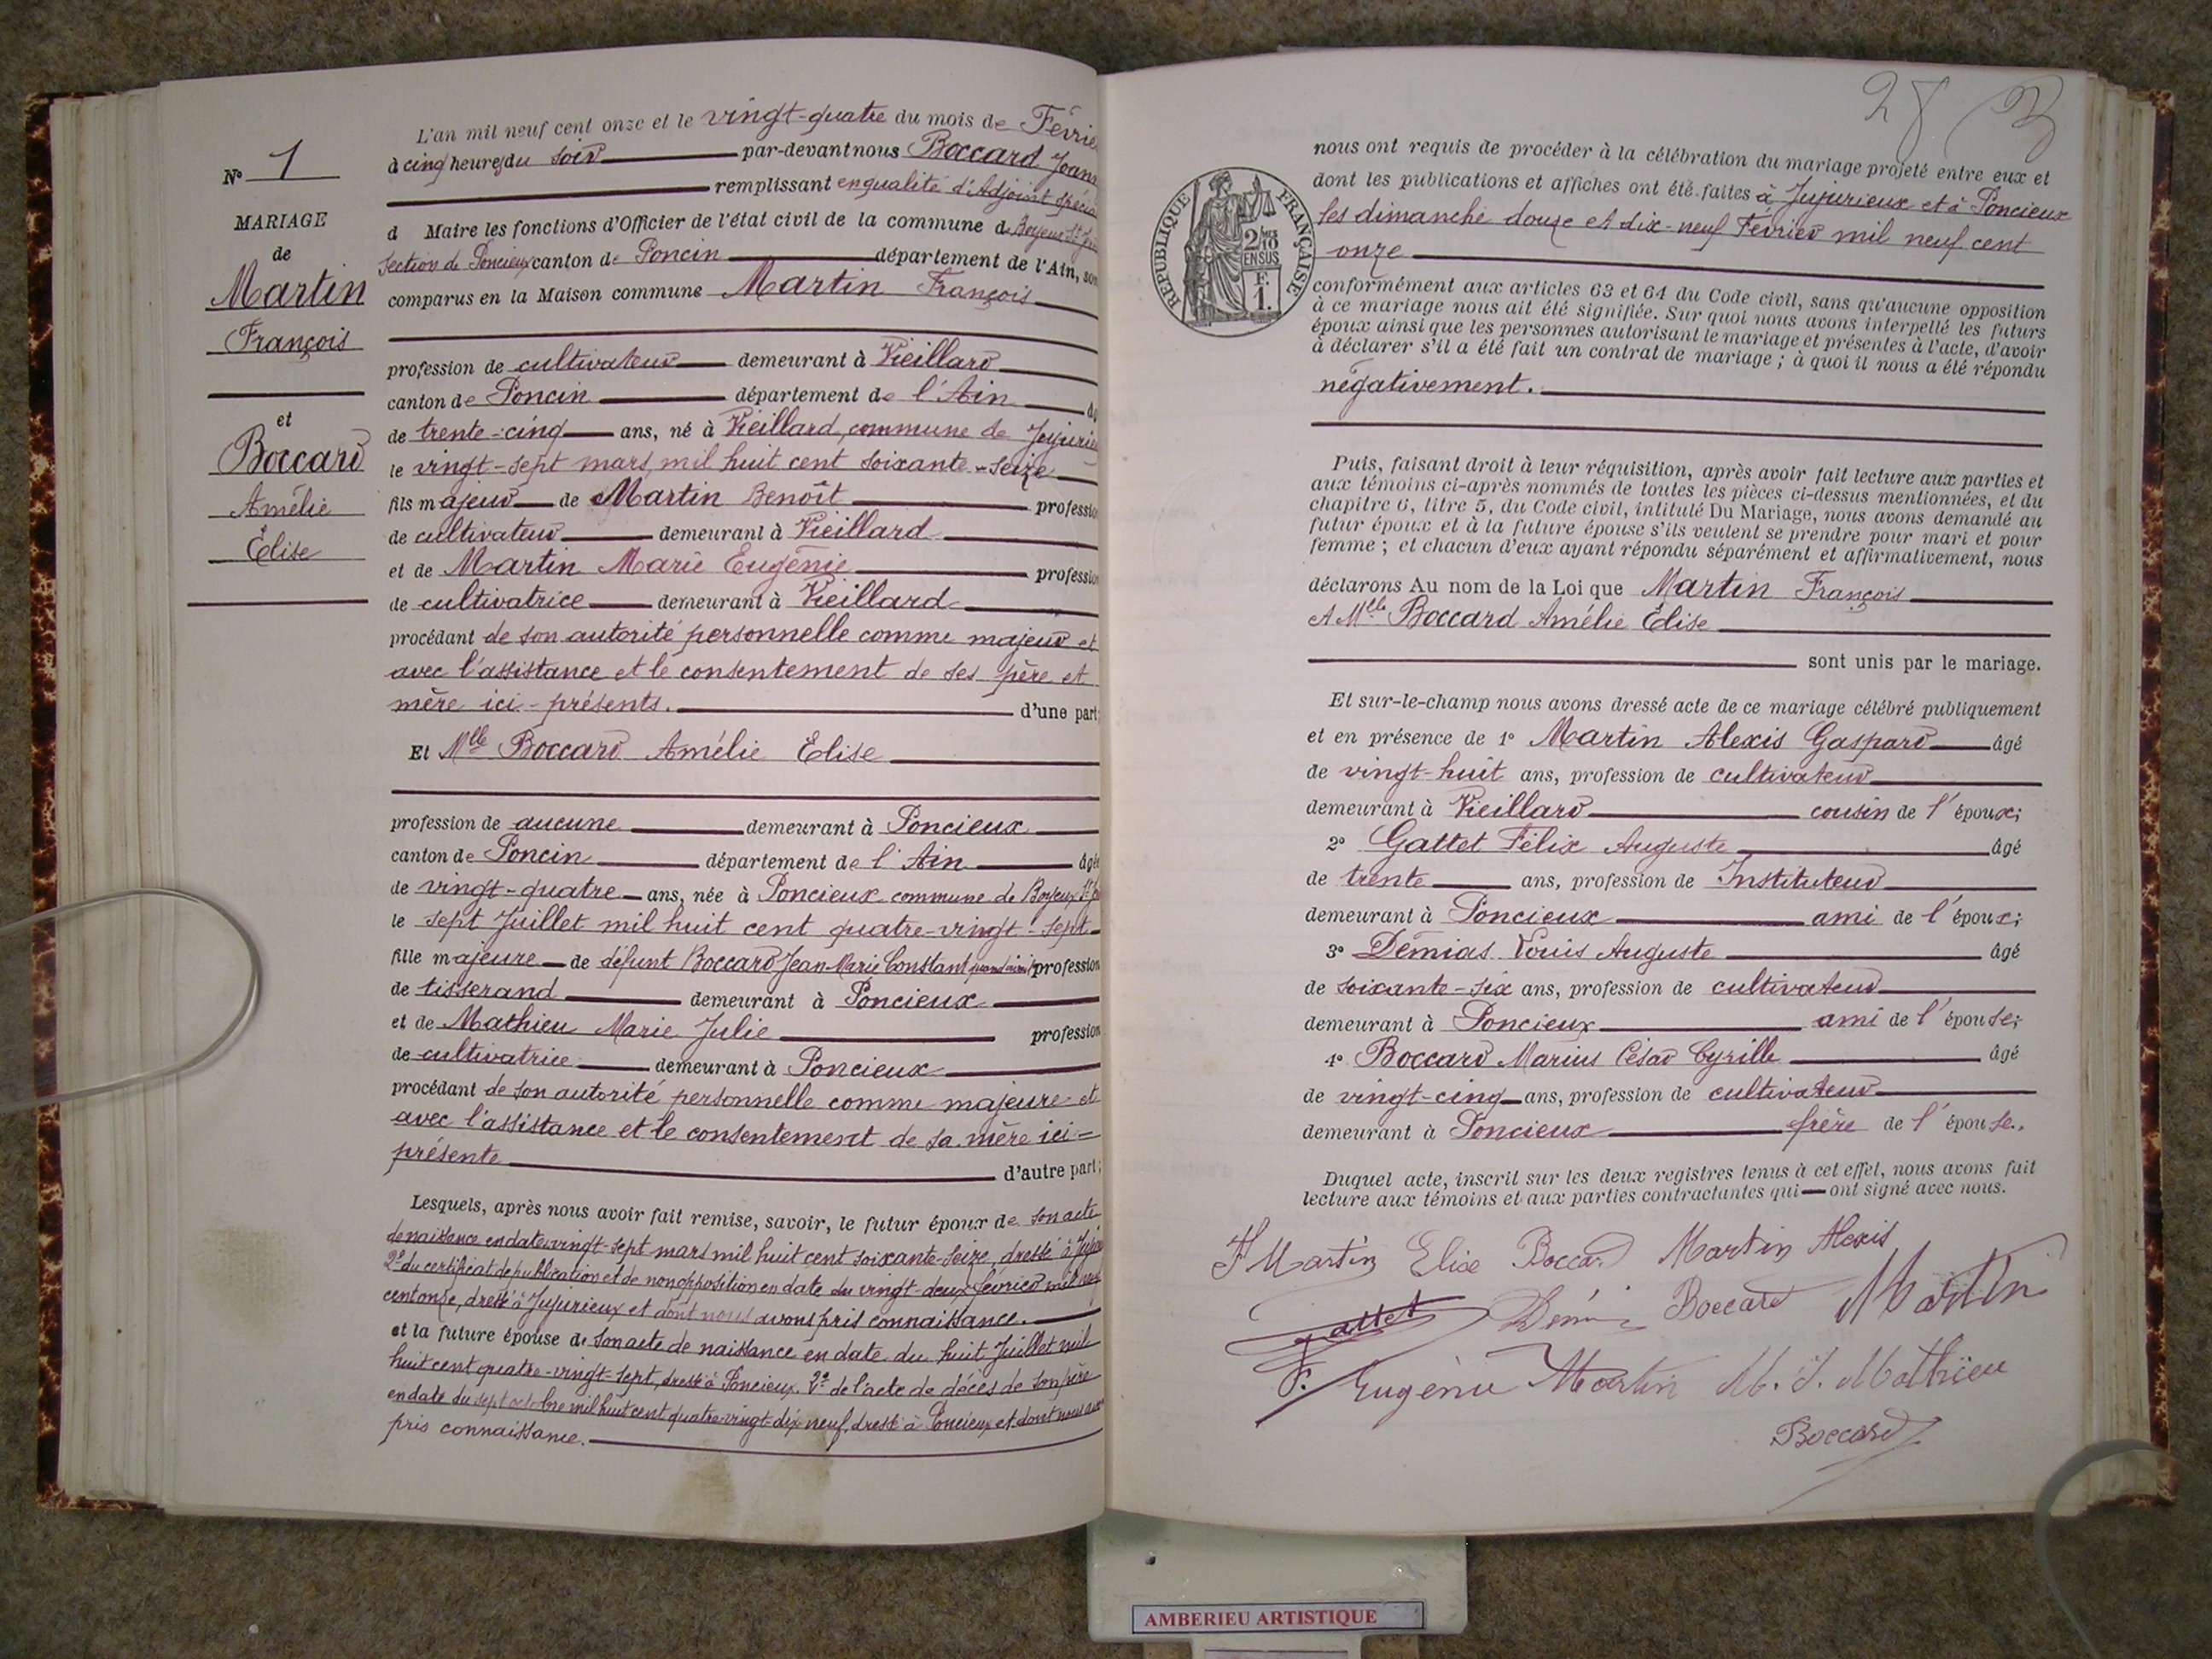 L'an mil neuf cent onze et le vingt-quatre du mois de Févrie
à cinq heures du soir par-devant nous Boccard Joan
remplissant en qualité d'Adjoint spécia
d Maire les fonctions d'Officier de l'état civil de la commune de Boyeux-St-
Section de Poncieux canton de Poncin département de l'Ain, son
comparus en la Maison commune Martin François
profession de cultivateur demeurant à Vieillard
canton de Poncin département de l'Ain
de trente-cinq ans, né à Vieillard, commune de Jujurie
le vingt-sept mars mil huit cent soixante-seize
fils majeur de Martin Benoît professio
de cultivateur demeurant à Vieillard
et de Martin Marie Eugénie profession
de cultivatrice demeurant à Vieillard
procédant de son autorité personnelle comme majeur et
avec l'assistance et le consentement de ses père et
mère ici-présents. d'une part;
Et Mlle Boccard Amélie Elise
profession de aucune demeurant à Poncieux
canton de Poncin département de l'Ain âgée
de vingt-quatre ans, née à Poncieux commune de Boyeux-St-
le sept Juillet mil huit cent quatre-vingt-sept
fille majeure de défunt Boccard Jean-Marie Constant quand vivait profession
de tisserand demeurant à Poncieux
et de Mathieu Marie Julie profession
de cultivatrice demeurant à Poncieux
procédant de son autorité personnelle comme majeure et
avec l'assistance et le consentement de sa mère ici-
présente d'autre part;
Lesquels, après nous avoir fait remise, savoir, le futur époux de son acte
de naissance en date vingt-sept mars mil huit cent soixante-seize, dressé à
2° du certificat de publication et de non opposition en date du vingt-deux février mil neuf
cent onze, dressé à Jujurieux et dont nous avons pris connaissance.
et la future épouse de son acte de naissance en date du huit Juillet mil
huit cent quatre-vingt-sept, dressé à Poncieux. 2° de l'acte de décès de son père
en date du sept octobre mil huit cent quatre-vingt-dix-neuf, dressé à Poncieux et dont nous
pris connaissance.
N° 1
MARIAGE
de
Martin
François
et
Boccard
Amélie
Elise
28
nous ont requis de procéder à la célébration du mariage projeté entre eux et
dont les publications et affiches ont été faites à Jujurieux et à Poncieux
les dimanche douze et dix-neuf Février mil neuf cent
onze
RÉPUBLIQUE FRANÇAISE
2/10
EN SUS
F.
1.
conformément aux articles 63 et 64 du Code civil, sans qu'aucune opposition
à ce mariage nous ait été signifiée. Sur quoi nous avons interpellé les futurs
époux ainsi que les personnes autorisant le mariage et présentes à l'acte, d'avoir
à déclarer s'il a été fait un contrat de mariage ; à quoi il nous a été répondu
négativement.
Puis, faisant droit à leur réquisition, après avoir fait lecture aux parties et
aux témoins ci-après nommés de toutes les pièces ci-dessus mentionnées, et du
chapitre 6, titre 5, du Code civil, intitulé Du Mariage, nous avons demandé au
futur époux et à la future épouse s'ils veulent se prendre pour mari et pour
femme ; et chacun d'eux ayant répondu séparément et affirmativement, nous
déclarons Au nom de la Loi que Martin François
et Mlle Boccard Amélie Elise
sont unis par le mariage.
Et sur-le-champ nous avons dressé acte de ce mariage célébré publiquement
et en présence de 1° Martin Alexis Gaspard âgé
de vingt-huit ans, profession de cultivateur
demeurant à Vieillard cousin de l'époux;
2° Gattet Félix Auguste âgé
de trente ans, profession de Instituteur
demeurant à Poncieux ami de l'époux;
3° Démias Louis Auguste âgé
de soixante-six ans, profession de cultivateur
demeurant à Poncieux ami de l'épouse;
4° Boccard Marius César Cyrille âgé
de vingt-cinq ans, profession de cultivateur
demeurant à Poncieux frère de l'épouse.
Duquel acte, inscrit sur les deux registres tenus à cet effet, nous avons fait
lecture aux témoins et aux parties contractantes qui ont signé avec nous.
F Martin Elise Boccard Martin Alexis
F. Gattet Boccard Martin
Eugénie Martin M. J. Mathieu
Boccard
AMBERIEU ARTISTIQUE